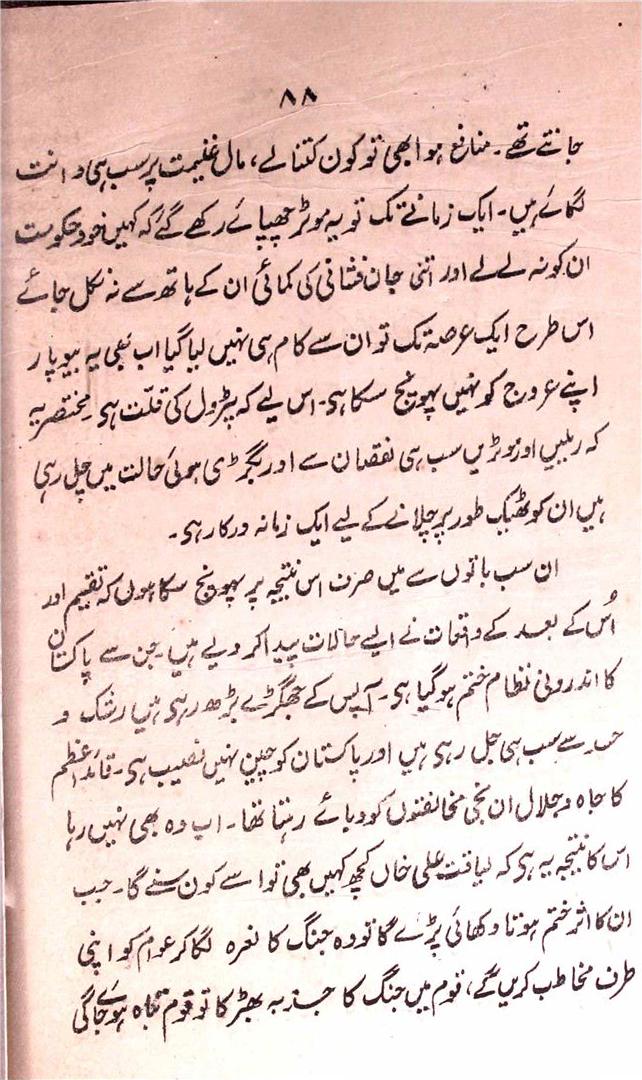 ۸۸
جانتے تھے۔ منافع ہوا بھی تو کون کتنا لے، مال غنیمت پر سب ہی دانت
لگائے ہیں۔ ایک زمانے تک تو یہ موٹر چھپائے رکھے گئے کہ کہیں خود حکومت
ان کو نہ لے لے اور اتنی جان فشانی کی کمائی ان کے ہاتھ سے نہ نکل جائے
اس طرح ایک عرصہ تک تو ان سے کام ہی نہیں لیا گیا اب بھی یہ بیوپار
اپنے عروج کو نہیں پہونچ سکا ہی۔ اس لیے کہ پٹرول کی قلت ہی۔ مختصر یہ
کہ ریلیں اور موٹریں سب ہی نقصان سے اور بگڑی ہوئی حالت میں چل رہی
ہیں ان کو ٹھیک طور پر چلانے کے لیے ایک زمانہ درکار ہی۔
ان سب باتوں سے میں صرف اس نتیجہ پر پہونچ سکا ہوں کہ تقیم اور
اُس کے بعد کے واقعات نے ایسے حالات پیدا کر دیے ہیں۔ جن سے پاکستان
کا اندرونی نظام ختم ہو گیا ہی۔ آپس کے جھگڑے بڑھ رہی ہیں رشک و
حسد سے سب ہی جل رہی ہیں اور پاکستان کو چین نہیں نصیب ہی۔ قائد اعظم
کا جاہ و جلال ان نجی مخالفتوں کو دبائے رہتا تھا۔ اب وہ بھی نہیں رہا
اس کا نتیجہ یہ ہی کہ لیاقت علی خاں کچھ کہیں بھی تو اسے کون سنے گا۔ جب
ان کا اثر ختم ہوتا دکھائی پڑے گا تو وہ جنگ کا نعرہ لگا کر عوام کو اپنی
طرف مخاطب کریں گے، قوم میں جنگ کا جذبہ بھڑکا تو قوم تباہ ہو جائے گی